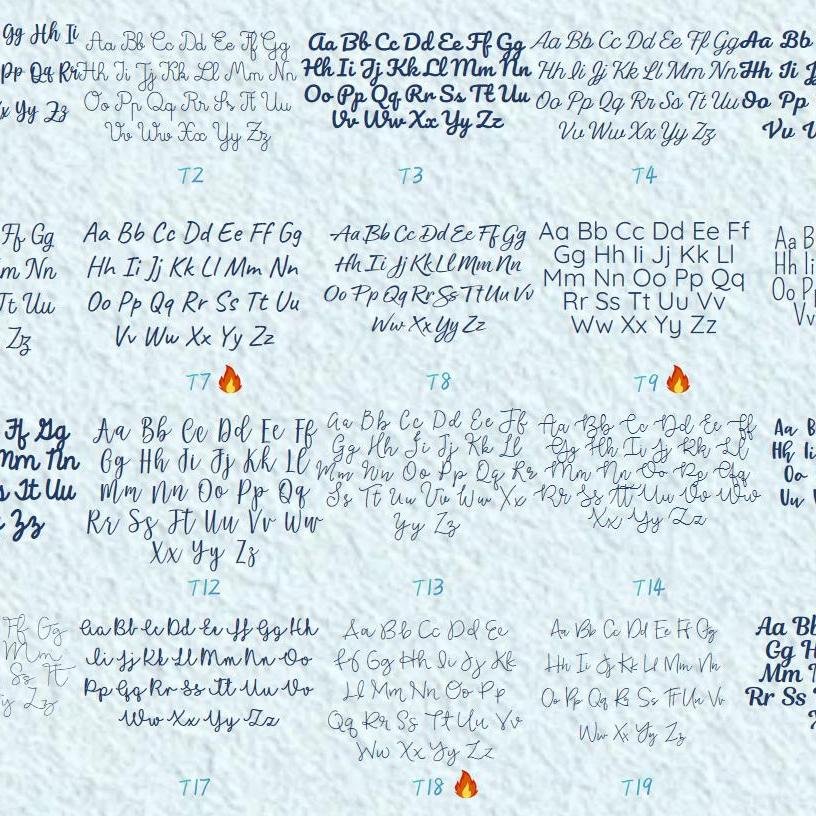 Gg Hh Ii
Pp Qq Rr
Xx Yy Zz
Aa Bb Cc Dd Ee Ff Gg
Hh Ii Jj Kk Ll Mm Nn
Oo Pp Qq Rr Ss Tt Uu
Vv Ww Xx Yy Zz
T2
Aa Bb Cc Dd Ee Ff Gg
Hh Ii Jj Kk Ll Mm Nn
Oo Pp Qq Rr Ss Tt Uu
Vv Ww Xx Yy Zz
T3
Aa Bb Cc Dd Ee Ff Gg
Hh Ii Jj Kk Ll Mm Nn
Oo Pp Qq Rr Ss Tt Uu
Vv Ww Xx Yy Zz
T4
Aa Bb
Hh Ii J
Oo Pp
Vv
Ff Gg
m Nn
Tt Uu
Zz
Aa Bb Cc Dd Ee Ff Gg
Hh Ii Jj Kk Ll Mm Nn
Oo Pp Qq Rr Ss Tt Uu
Vv Ww Xx Yy Zz
T7
Aa Bb Cc Dd Ee Ff Gg
Hh Ii Jj Kk Ll Mm Nn
Oo Pp Qq Rr Ss Tt Uu Vv
Ww Xx Yy Zz
T8
Aa Bb Cc Dd Ee Ff
Gg Hh Ii Jj Kk Ll
Mm Nn Oo Pp Qq
Rr Ss Tt Uu Vv
Ww Xx Yy Zz
T9
Aa B
Hh Ii
Oo P
Vv
Ff Gg
Mm Nn
s Tt Uu
Zz
Aa Bb Cc Dd Ee Ff
Gg Hh Ii Jj Kk Ll
Mm Nn Oo Pp Qq
Rr Ss Tt Uu Vv Ww
Xx Yy Zz
T12
Aa Bb Cc Dd Ee Ff
Gg Hh Ii Jj Kk Ll
Mm Nn Oo Pp Qq Rr
Ss Tt Uu Vv Ww Xx
Yy Zz
T13
Aa Bb Cc Dd Ee Ff
Gg Hh Ii Jj Kk Ll
Mm Nn Oo Pp Qq
Rr Ss Tt Uu Vv Ww
Xx Yy Zz
T14
Aa B
Hh Ii
Oo
Uu
Ff Gg
Mm
Ss Tt
y Zz
Aa Bb Cc Dd Ee Ff Gg Hh
Ii Jj Kk Ll Mm Nn Oo
Pp Qq Rr Ss Tt Uu Vv
Ww Xx Yy Zz
T17
Aa Bb Cc Dd Ee
Ff Gg Hh Ii Jj Kk
Ll Mm Nn Oo Pp
Qq Rr Ss Tt Uu Vv
Ww Xx Yy Zz
T18
Aa Bb Cc Dd Ee Ff Gg
Hh Ii Jj Kk Ll Mm Nn
Oo Pp Qq Rr Ss Tt Uu Vv
Ww Xx Yy Zz
T19
Aa Bb
Gg H
Mm
Rr Ss